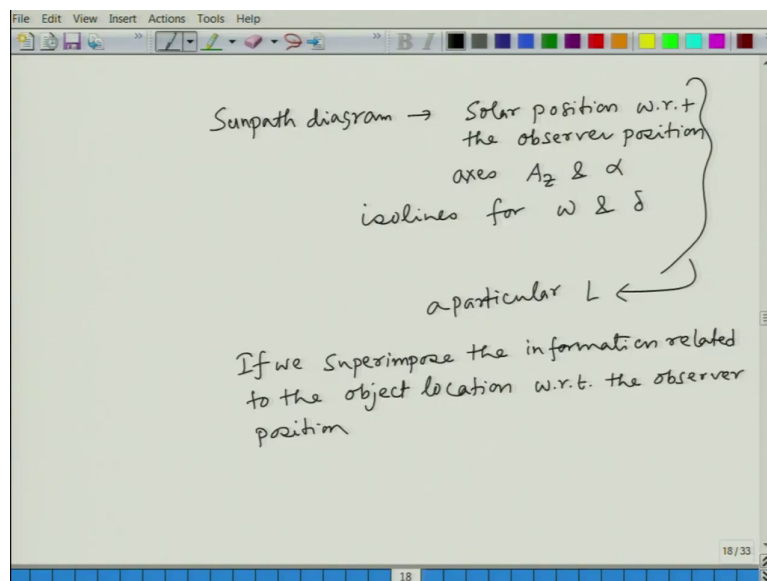 File Edit View Insert Actions Tools Help
B I
Sunpath diagram → Solar position w.r.t
the observer position
axes Az & α
isolines for ω & δ
a particular L ←
If we superimpose the information related
to the object location w.r.t. the observer
position
18/33
18